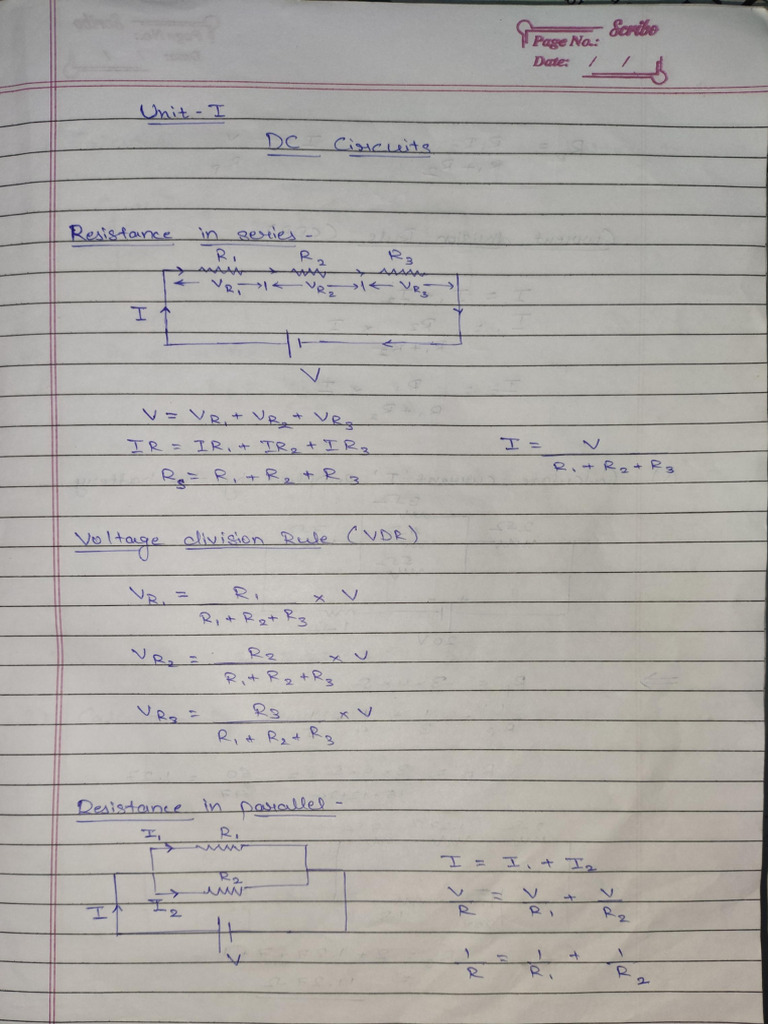 Scribo
Page No.:
Date: / /
Unit - I
DC Circuits
Resistance in series -
R₁ R₂ R₃
V_R₁ V_R₂ V_R₃
I
V
V = V_R₁ + V_R₂ + V_R₃
IR = IR₁ + IR₂ + IR₃
I = V / (R₁ + R₂ + R₃)
R_S = R₁ + R₂ + R₃
Voltage division Rule (VDR)
V_R₁ = R₁ / (R₁ + R₂ + R₃) × V
V_R₂ = R₂ / (R₁ + R₂ + R₃) × V
V_R₃ = R₃ / (R₁ + R₂ + R₃) × V
Resistance in parallel -
I₁ R₁
R₂
I I₂
V
I = I₁ + I₂
V/R = V/R₁ + V/R₂
1/R = 1/R₁ + 1/R₂